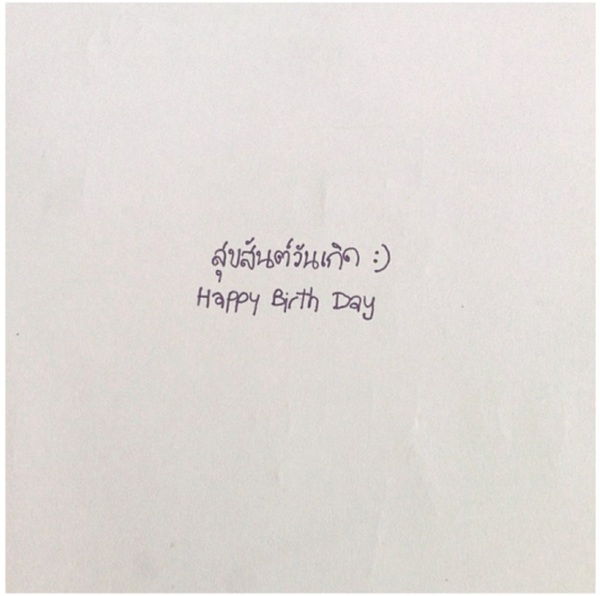 สุขสันต์วันเกิด :)
Happy Birth Day